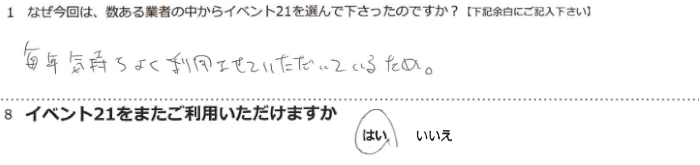 1 なぜ今回は、数ある業者の中からイベント21を選んで下さったのですか？【下記余白にご記入下さい】
毎年気持ちよく利用させていただいているため。
8 イベント21をまたご利用いただけますか
はい いいえ